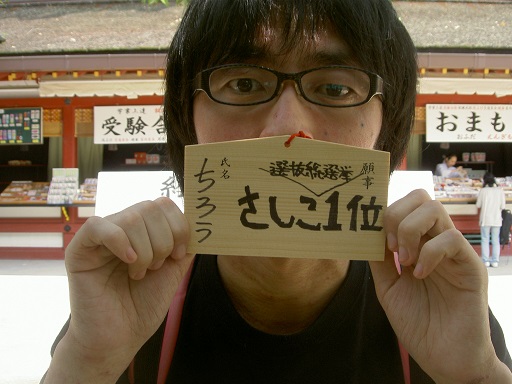 受験合
おまも
氏名
ちろう
願事
選抜総選挙
さしこ1位